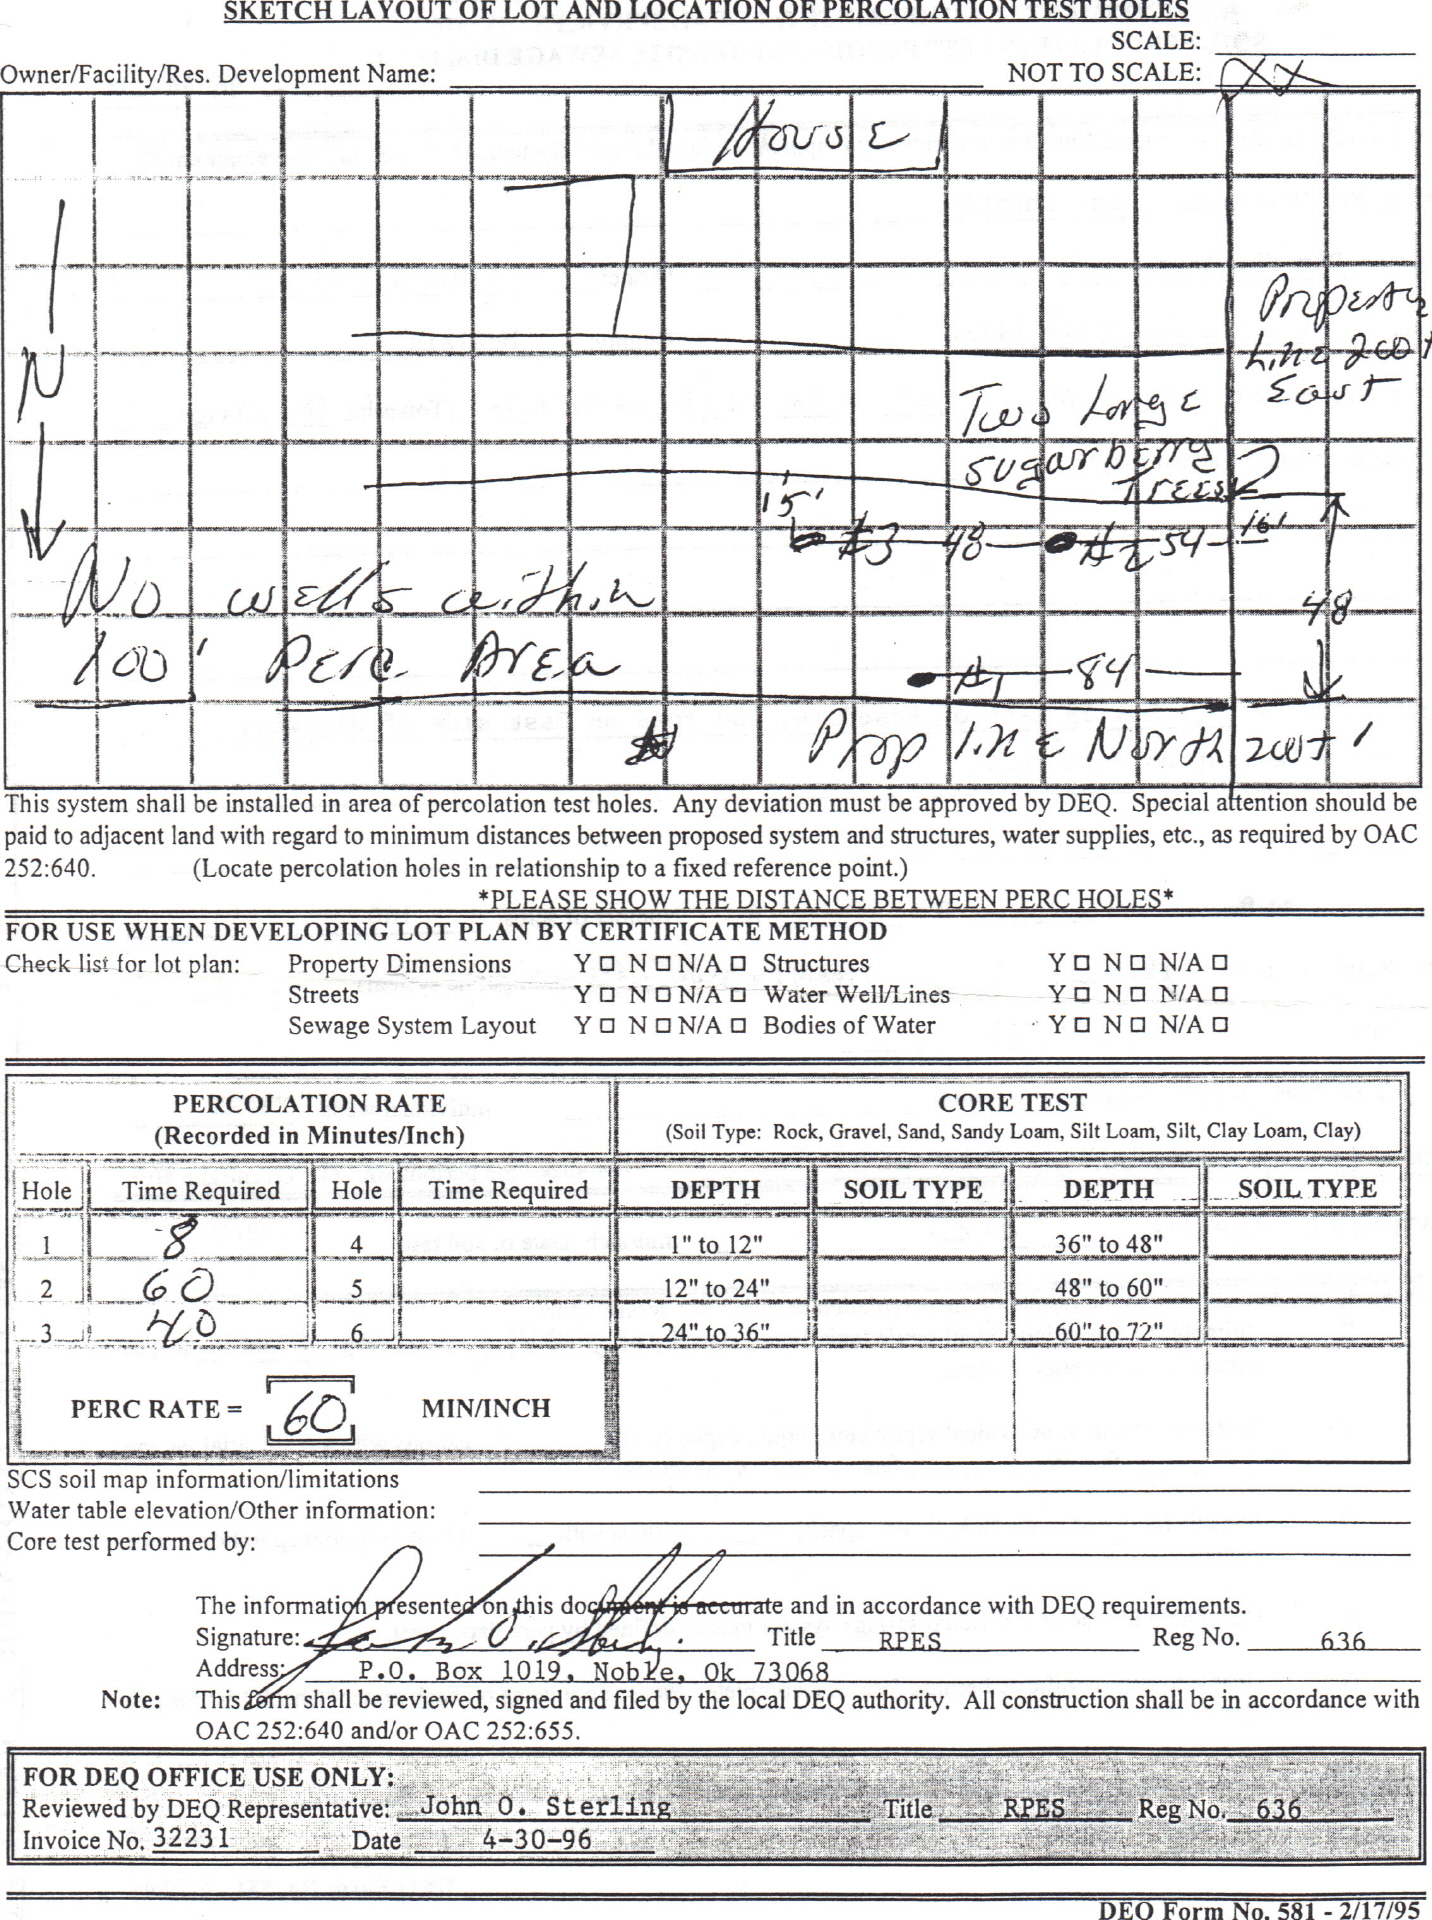 SKETCH LAYOUT OF LOT AND LOCATION OF PERCOLATION TEST HOLES
SCALE:
Owner/Facility/Res. Development Name: NOT TO SCALE: XX
House
Property
Line 200+
East
N
Two Large
Sugarberry
Trees
15'
#3 48 #2 54 16'
No wells within
48
100' Perc Area
#1 84
Prop line North 200+'
This system shall be installed in area of percolation test holes. Any deviation must be approved by DEQ. Special attention should be
paid to adjacent land with regard to minimum distances between proposed system and structures, water supplies, etc., as required by OAC
252:640. (Locate percolation holes in relationship to a fixed reference point.)
*PLEASE SHOW THE DISTANCE BETWEEN PERC HOLES*
FOR USE WHEN DEVELOPING LOT PLAN BY CERTIFICATE METHOD
Check list for lot plan: Property Dimensions Y □ N □ N/A □ Structures Y □ N □ N/A □
Streets Y □ N □ N/A □ Water Well/Lines Y □ N □ N/A □
Sewage System Layout Y □ N □ N/A □ Bodies of Water Y □ N □ N/A □
PERCOLATION RATE CORE TEST
(Recorded in Minutes/Inch) (Soil Type: Rock, Gravel, Sand, Sandy Loam, Silt Loam, Silt, Clay Loam, Clay)
Hole Time Required Hole Time Required DEPTH SOIL TYPE DEPTH SOIL TYPE
1 8 4 1" to 12" 36" to 48"
2 60 5 12" to 24" 48" to 60"
3 40 6 24" to 36" 60" to 72"
PERC RATE = 60 MIN/INCH
SCS soil map information/limitations
Water table elevation/Other information:
Core test performed by:
The information presented on this document is accurate and in accordance with DEQ requirements.
Signature: John O. Sterling Title RPES Reg No. 636
Address: P.O. Box 1019, Noble, Ok 73068
Note: This form shall be reviewed, signed and filed by the local DEQ authority. All construction shall be in accordance with
OAC 252:640 and/or OAC 252:655.
FOR DEQ OFFICE USE ONLY:
Reviewed by DEQ Representative: John O. Sterling Title RPES Reg No. 636
Invoice No. 32231 Date 4-30-96
DEQ Form No. 581 - 2/17/95